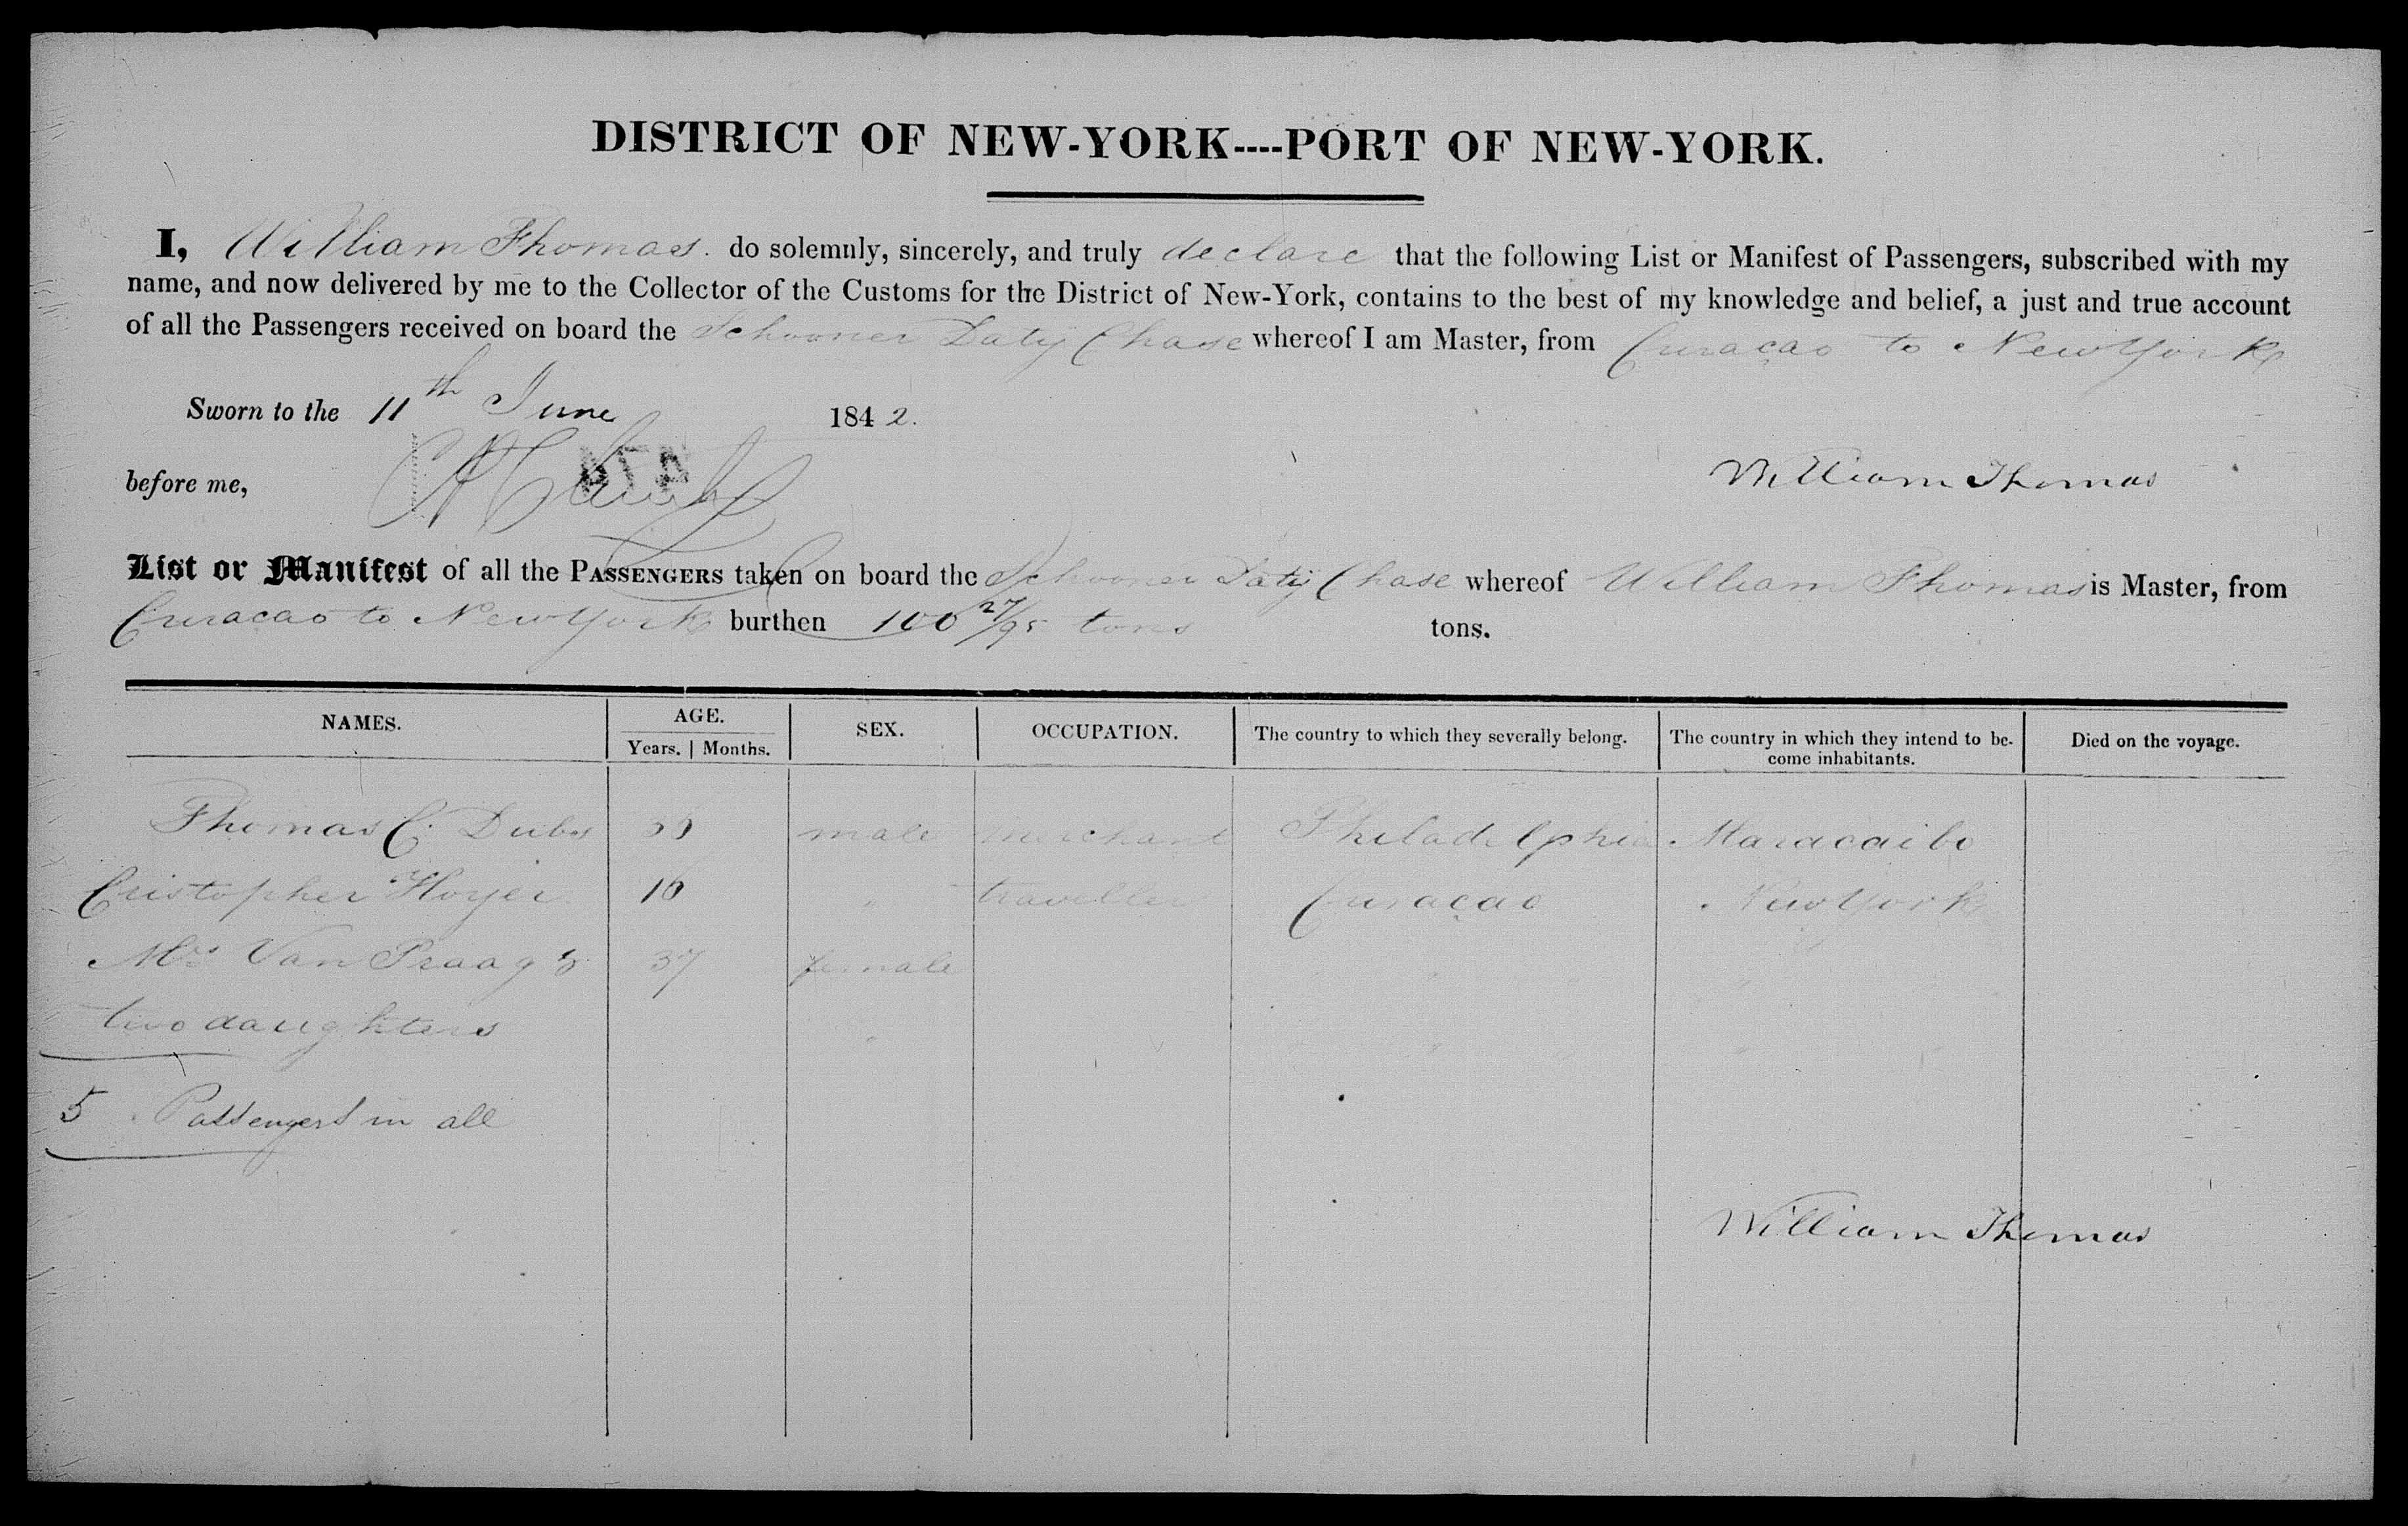 DISTRICT OF NEW-YORK----PORT OF NEW-YORK.
I, William Thomas. do solemnly, sincerely, and truly declare that the following List or Manifest of Passengers, subscribed with my
name, and now delivered by me to the Collector of the Customs for the District of New-York, contains to the best of my knowledge and belief, a just and true account
of all the Passengers received on board the Schooner Daty Chase whereof I am Master, from Curaçao to New York
Sworn to the 11th June 1842.
before me,
William Thomas
List or Manifest of all the PASSENGERS taken on board the Schooner Daty Chase whereof William Thomas is Master, from
Curaçao to New York burthen 100 27/95 tons tons.
NAMES. AGE. SEX. OCCUPATION. The country to which they severally belong. The country in which they intend to be-
come inhabitants. Died on the voyage.
Years. | Months.
Thomas C. Dubs male merchant Philadelphia Maracaibo
Cristopher Hoyer 16 " traveller Curaçao New York
Mrs Van Praag & 37 female " "
two daughters " " "
5 Passengers in all
William Thomas